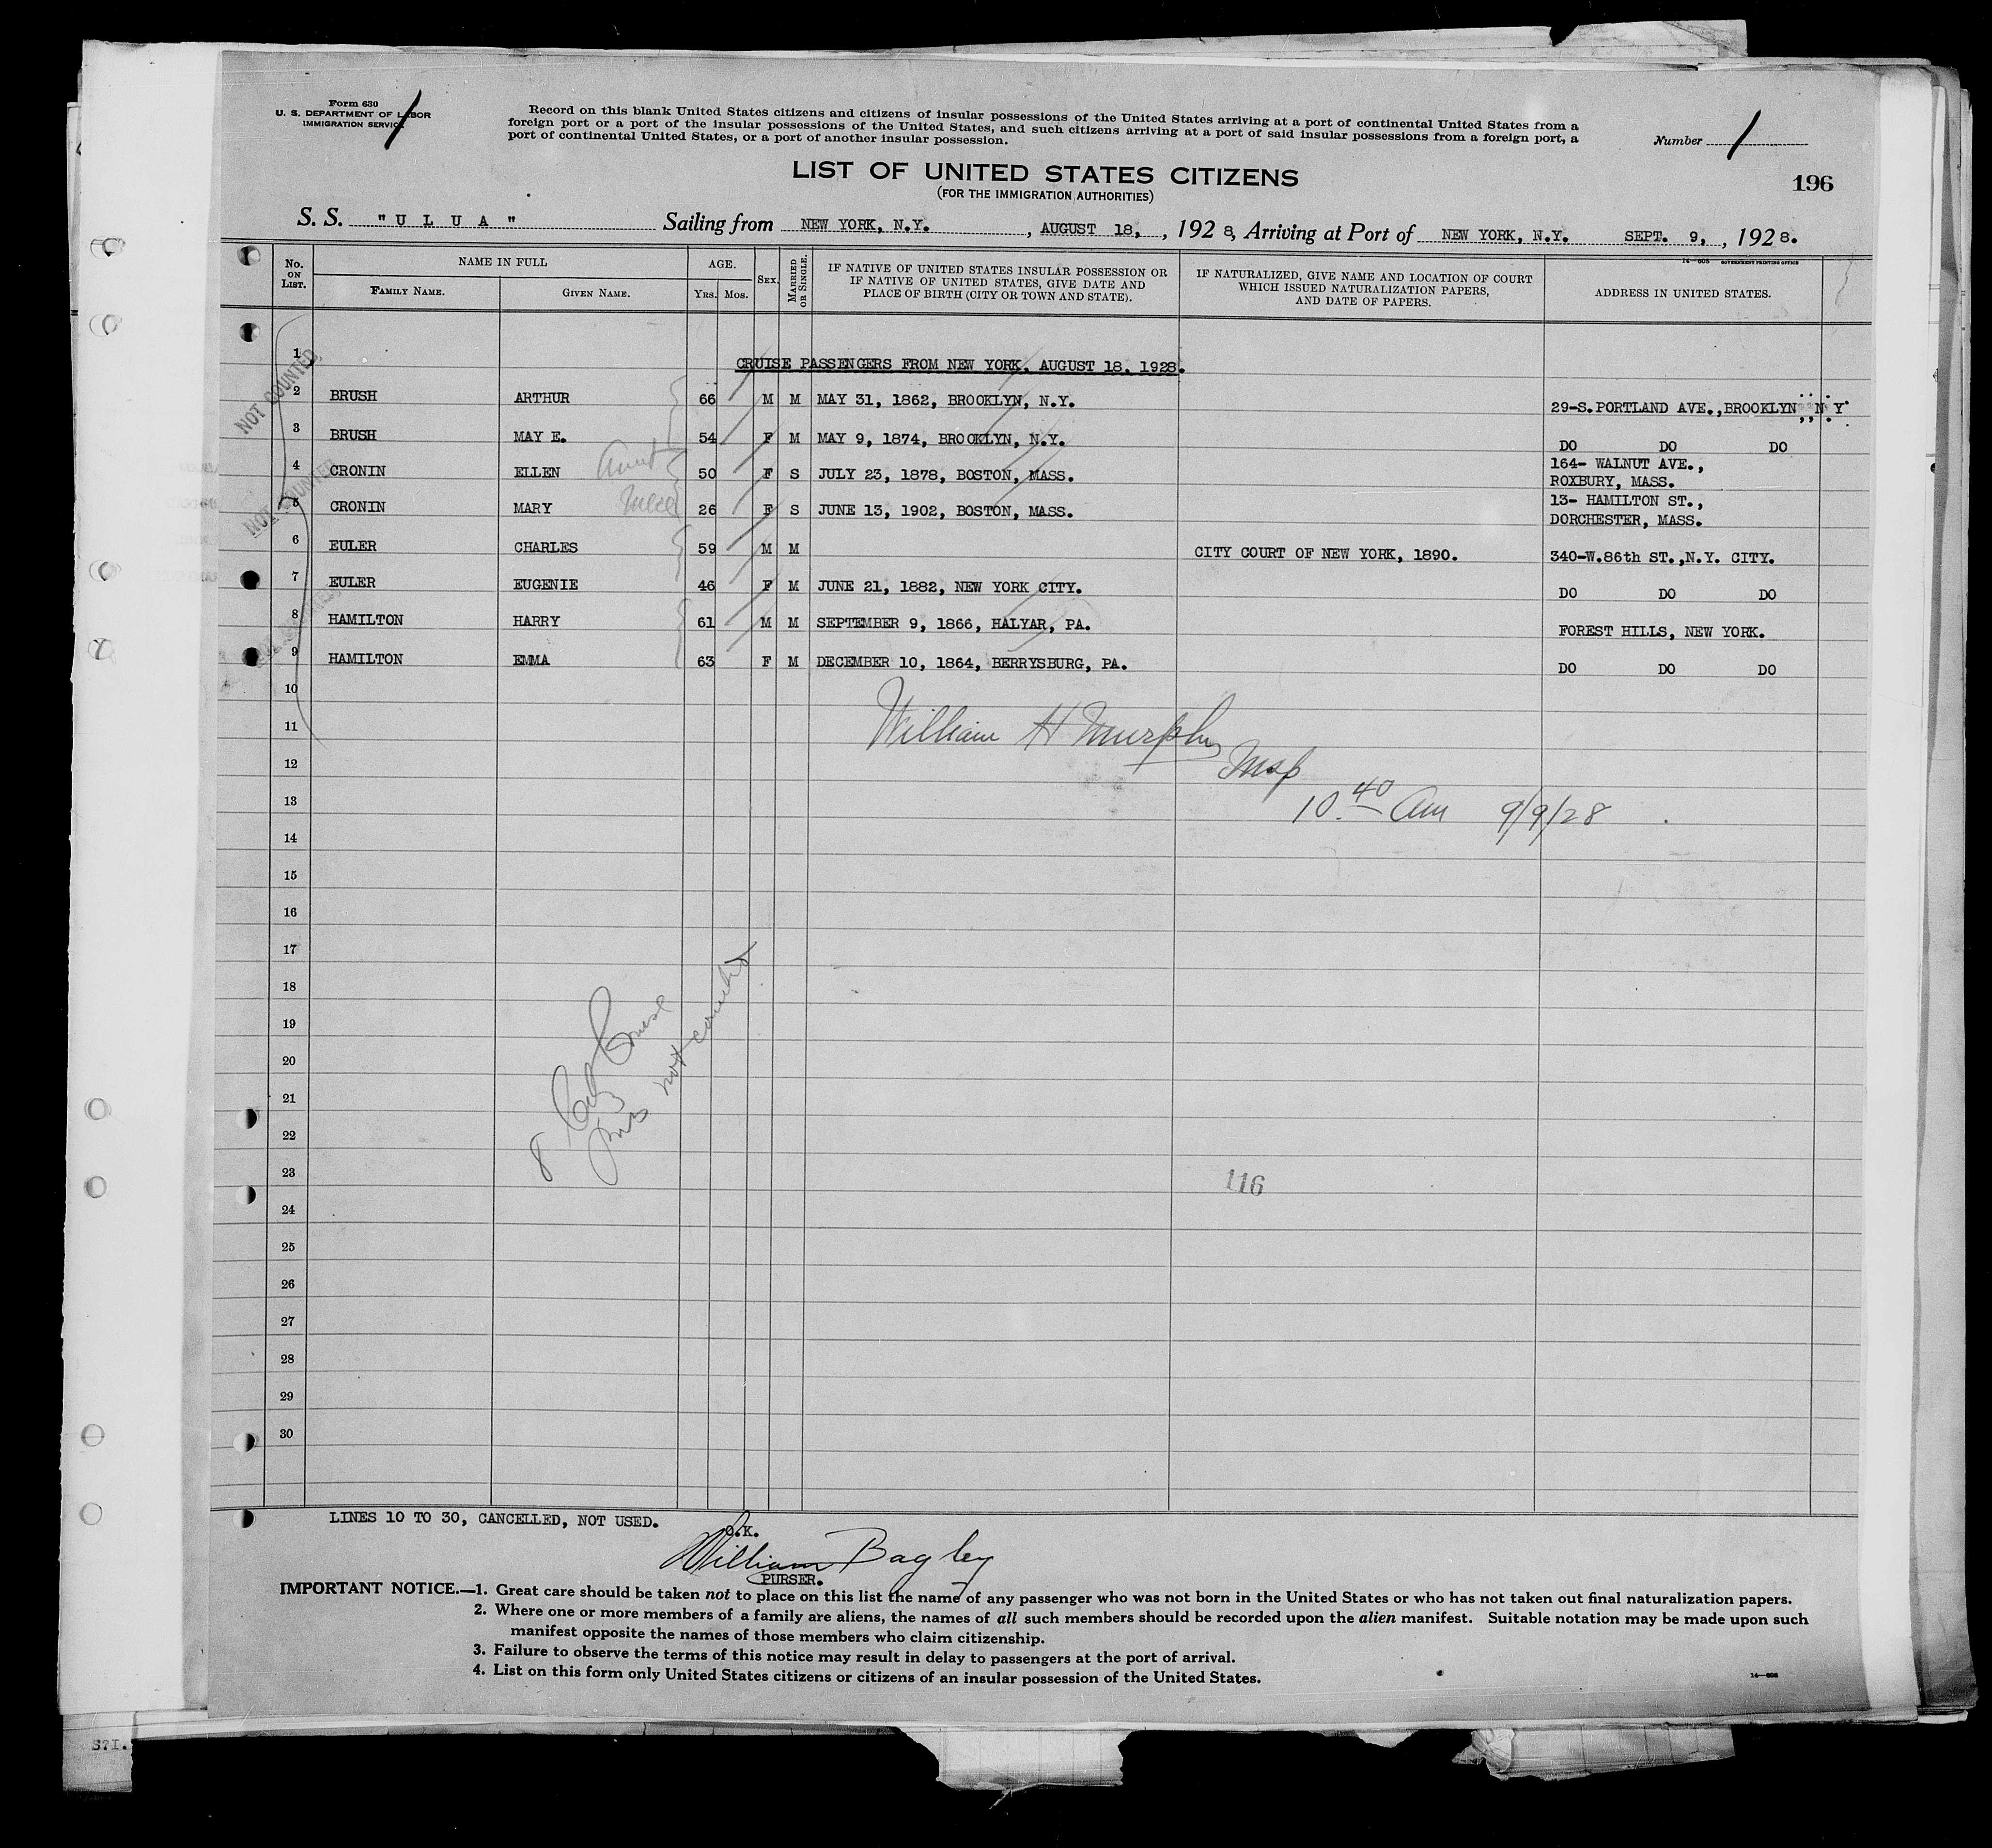 Form 630
U. S. DEPARTMENT OF LABOR
IMMIGRATION SERVICE
Record on this blank United States citizens and citizens of insular possessions of the United States arriving at a port of continental United States from a
foreign port or a port of the insular possessions of the United States, and such citizens arriving at a port of said insular possessions from a foreign port, a
port of continental United States, or a port of another insular possession.
Number 1
LIST OF UNITED STATES CITIZENS
(FOR THE IMMIGRATION AUTHORITIES)
196
S. S. "U L U A" Sailing from NEW YORK, N.Y. , AUGUST 18, , 192 8, Arriving at Port of NEW YORK, N.Y. SEPT. 9, , 192 8.
14—608 GOVERNMENT PRINTING OFFICE
No. ON LIST. NAME IN FULL FAMILY NAME. GIVEN NAME. AGE. YRS. MOS. SEX. MARRIED OR SINGLE. IF NATIVE OF UNITED STATES INSULAR POSSESSION OR IF NATIVE OF UNITED STATES, GIVE DATE AND PLACE OF BIRTH (CITY OR TOWN AND STATE). IF NATURALIZED, GIVE NAME AND LOCATION OF COURT WHICH ISSUED NATURALIZATION PAPERS, AND DATE OF PAPERS. ADDRESS IN UNITED STATES.
1 CRUISE PASSENGERS FROM NEW YORK, AUGUST 18, 1928.
NOT COUNTED
2 BRUSH ARTHUR 66 M M MAY 31, 1862, BROOKLYN, N.Y. 29-S.PORTLAND AVE.,BROOKLYN, N Y
3 BRUSH MAY E. 54 F M MAY 9, 1874, BROOKLYN, N.Y. DO DO DO
4 CRONIN ELLEN Aunt 50 F S JULY 23, 1878, BOSTON, MASS. 164- WALNUT AVE., ROXBURY, MASS.
NOT COUNTED
5 CRONIN MARY Niece 26 F S JUNE 13, 1902, BOSTON, MASS. 13- HAMILTON ST., DORCHESTER, MASS.
6 EULER CHARLES 59 M M CITY COURT OF NEW YORK, 1890. 340-W.86th ST.,N.Y. CITY.
7 EULER EUGENIE 46 F M JUNE 21, 1882, NEW YORK CITY. DO DO DO
8 HAMILTON HARRY 61 M M SEPTEMBER 9, 1866, HALYAR, PA. FOREST HILLS, NEW YORK.
9 HAMILTON EMMA 63 F M DECEMBER 10, 1864, BERRYSBURG, PA. DO DO DO
10
11 William H Murphy
12 Insp
13 10.40 Am 9/9/28
14
15
16
17
18
19
20
21
22
8 Cruise
not counted
23 116
24
25
26
27
28
29
30
LINES 10 TO 30, CANCELLED, NOT USED.
O.K.
William Bagley
PURSER.
IMPORTANT NOTICE.—1. Great care should be taken not to place on this list the name of any passenger who was not born in the United States or who has not taken out final naturalization papers.
2. Where one or more members of a family are aliens, the names of all such members should be recorded upon the alien manifest. Suitable notation may be made upon such
manifest opposite the names of those members who claim citizenship.
3. Failure to observe the terms of this notice may result in delay to passengers at the port of arrival.
4. List on this form only United States citizens or citizens of an insular possession of the United States.
14—608